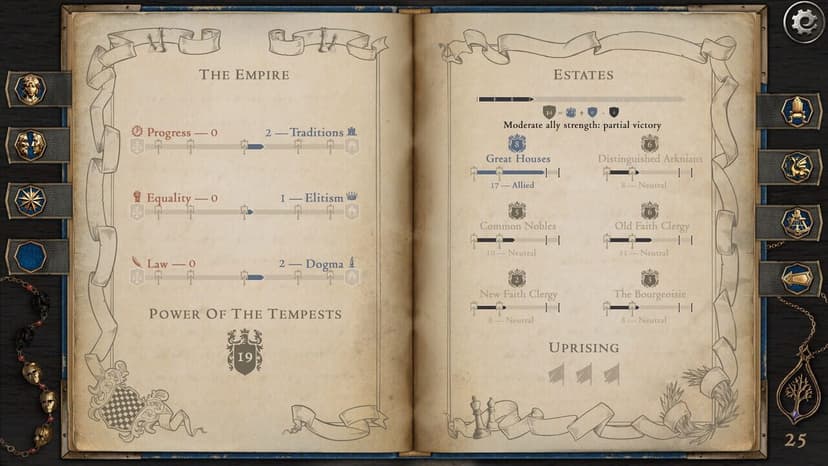 The Empire
Progress — 0
2 — Traditions
Equality — 0
1 — Elitism
Law — 0
2 — Dogma
Power Of The Tempests
19
Estates
Moderate ally strength: partial victory
8
6
Great Houses
Distinguished Arknians
17 — Allied
8 — Neutral
Common Nobles
Old Faith Clergy
10 — Neutral
11 — Neutral
New Faith Clergy
The Bourgeoisie
8 — Neutral
Uprising
25